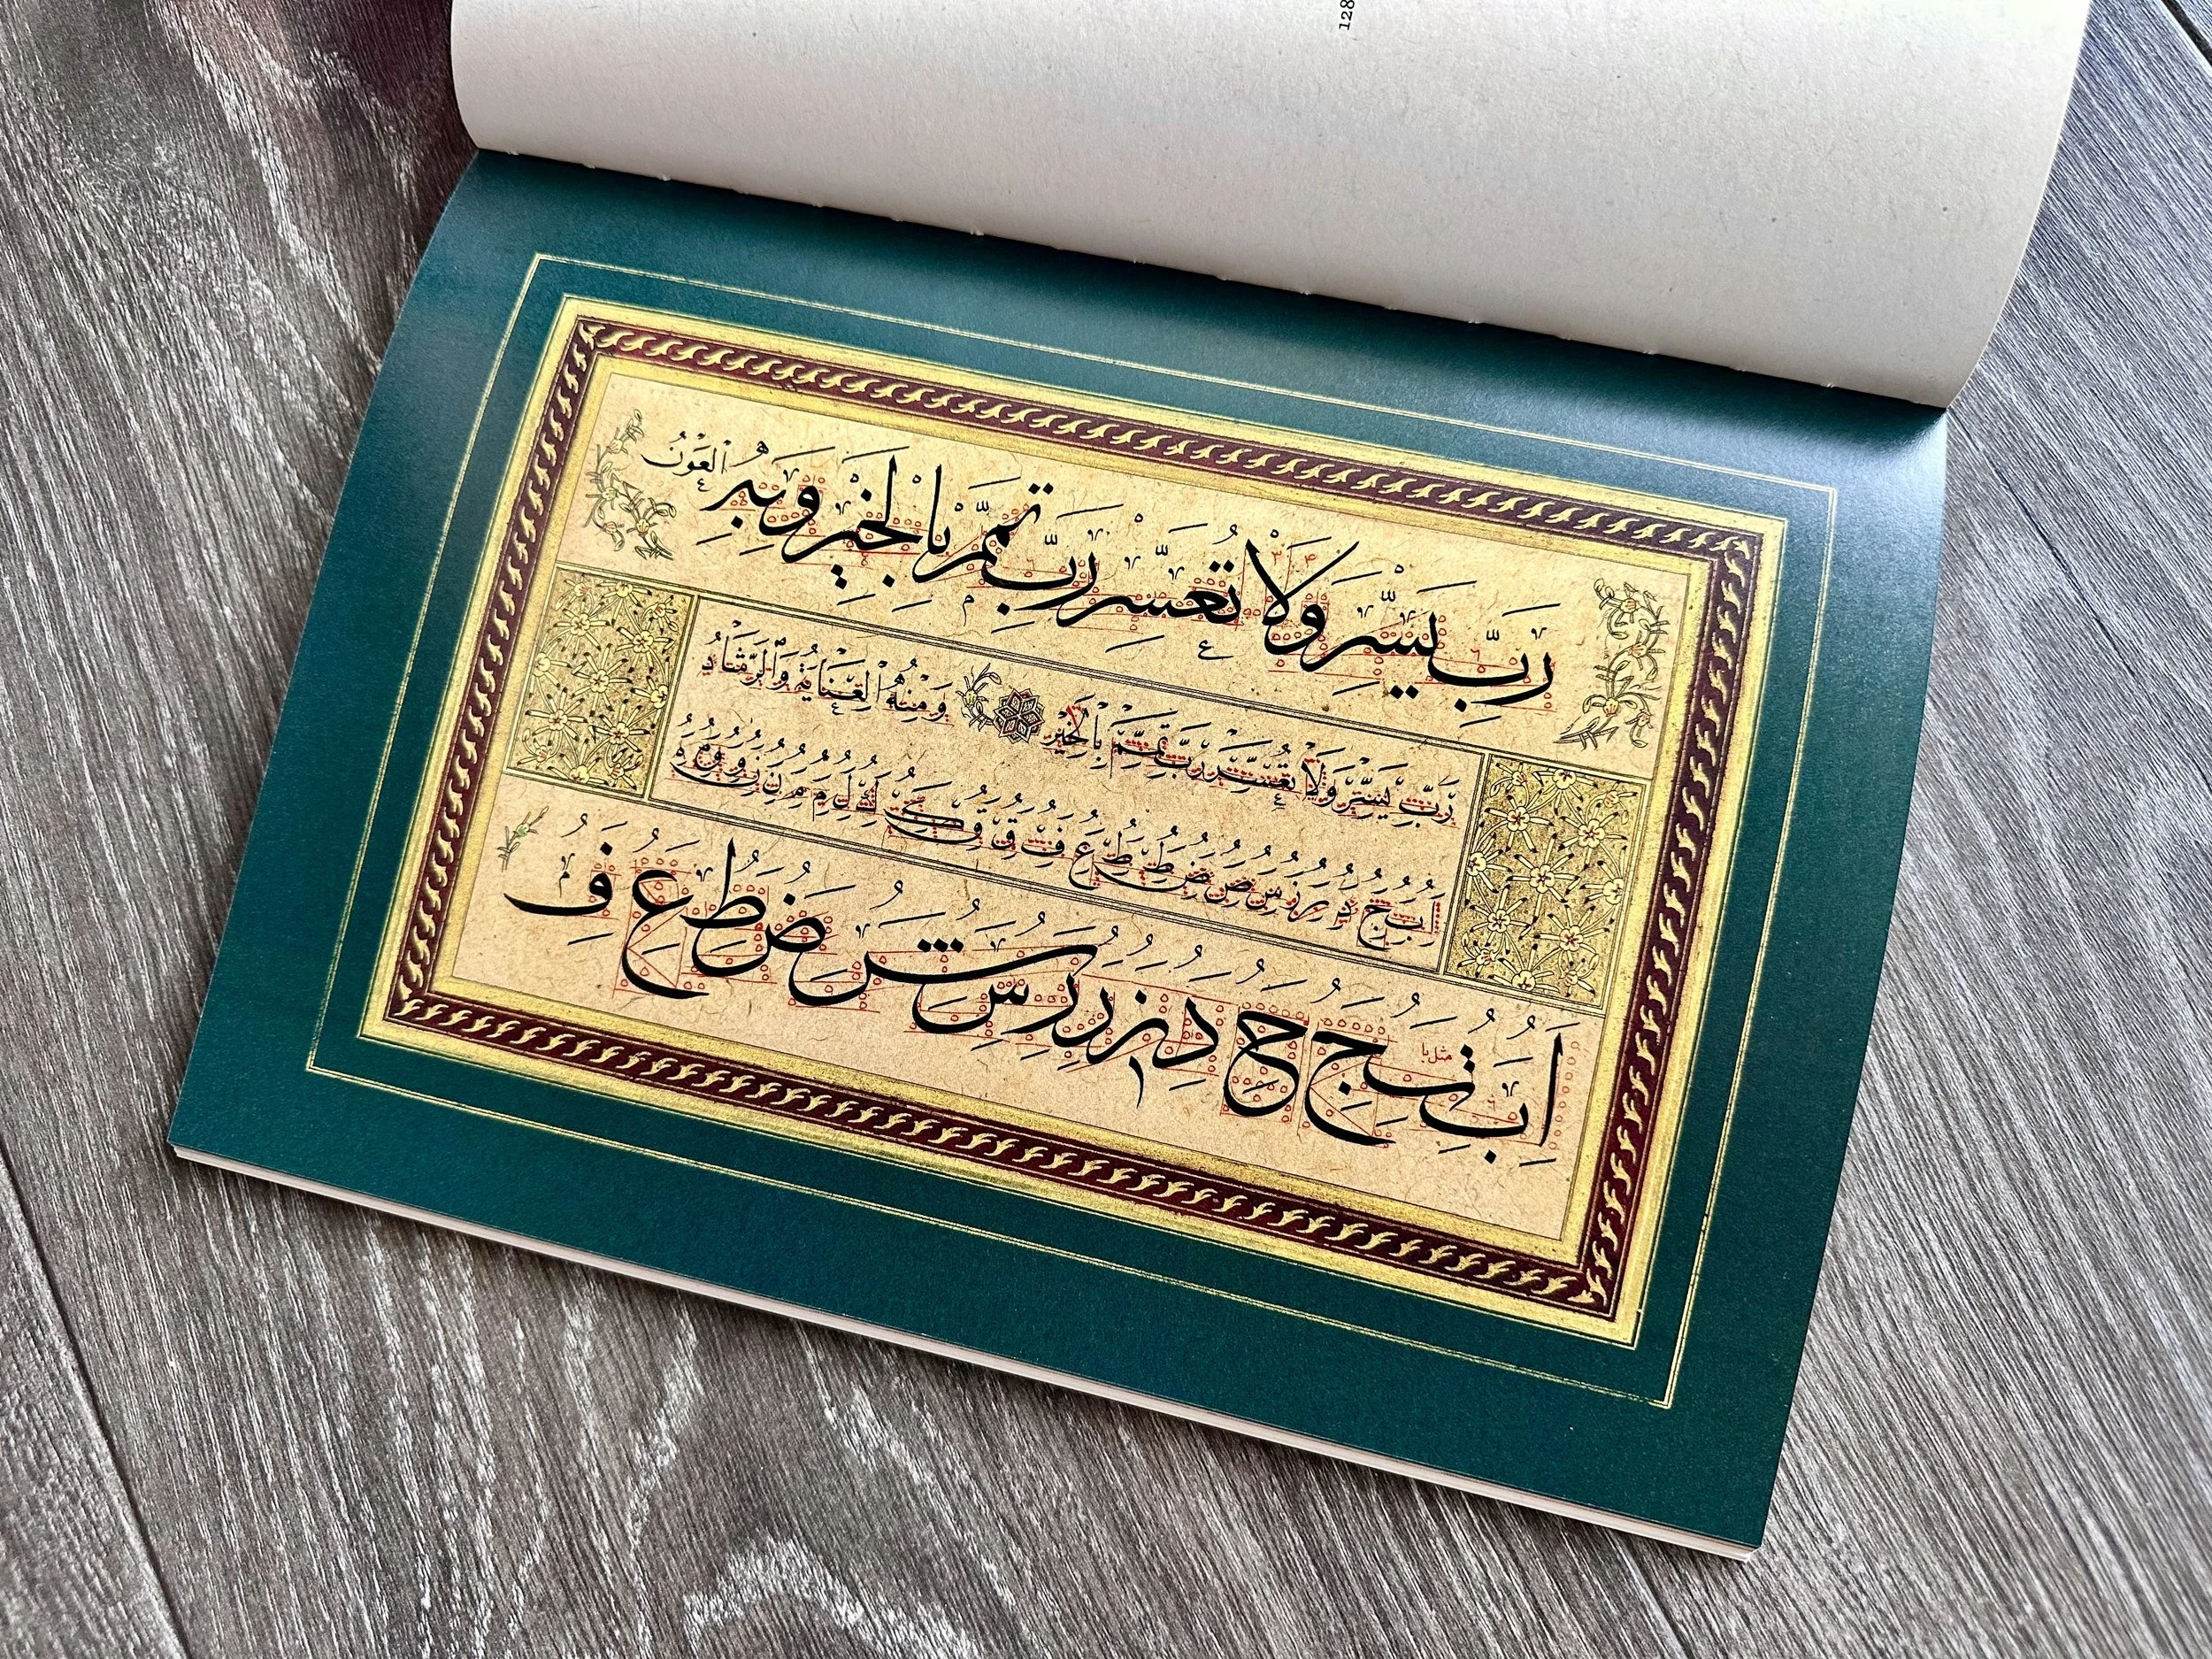 128
رَبِّ يَسِّرْ وَلَا تُعَسِّرْ رَبِّ تَمِّمْ بِالْخَيْرِ وَبِهِ الْعَوْنُ
رَبِّ يَسِّرْ وَلَا تُعَسِّرْ رَبِّ تَمِّمْ بِالْخَيْرِ وَمِنْهُ الْعِنَايَةُ وَالرَّشَادُ
ا ب ج د ر ز س ص ض ط ظ ع ف ق ك ل م ن و
ا ب ت ج ح د ز ر ر س ش ض ط ع ف
مثل با